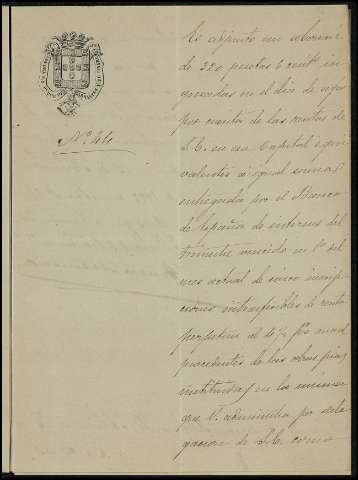 Nº 44
Es adjunto un abonaré
de 320 pesetas 6 cents in
gresadas en el dia de ayer
por cuenta de las rentas de
S.E. en esa Capital equi
valentes á igual suma
entregada por el Banco
de España de intereses del
trimestre vencido en 1º del
mes actual de cinco inscrip
ciones intrasferibles de renta
perpetua al 4 % anual
procedentes de las obras pias
instituidas en las mismas
que V. administra por dele
gacion de S.E. como